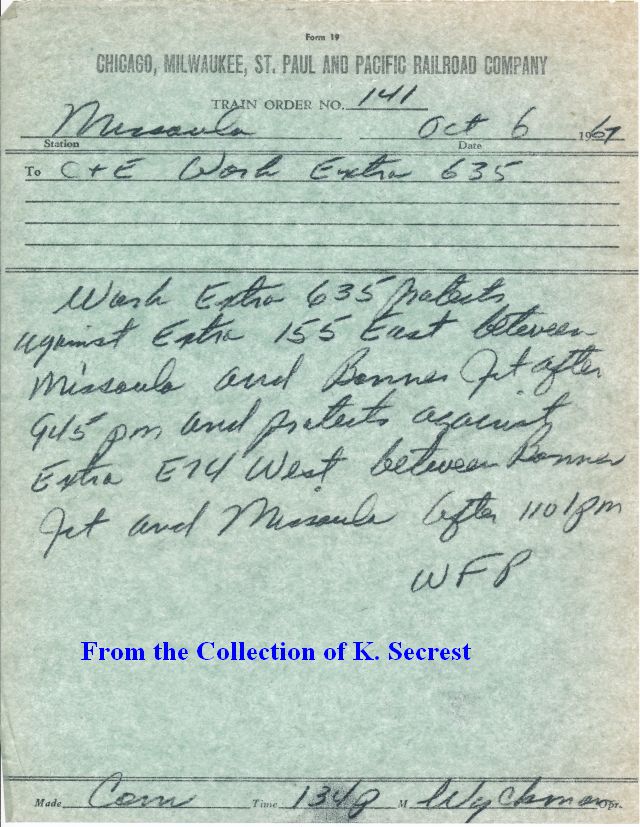 Form 19
CHICAGO, MILWAUKEE, ST. PAUL AND PACIFIC RAILROAD COMPANY
TRAIN ORDER NO. 141
Missoula Oct 6 1967
Station Date
To C+E Work Extra 635
Work Extra 635 protects
against Extra 155 East between
Missoula and Bonner Jct after
945 pm and protects against
Extra E74 West between Bonner
Jct and Missoula after 1101pm
WFP
From the Collection of K. Secrest
Made Com Time 134p M Wyckman Opr.